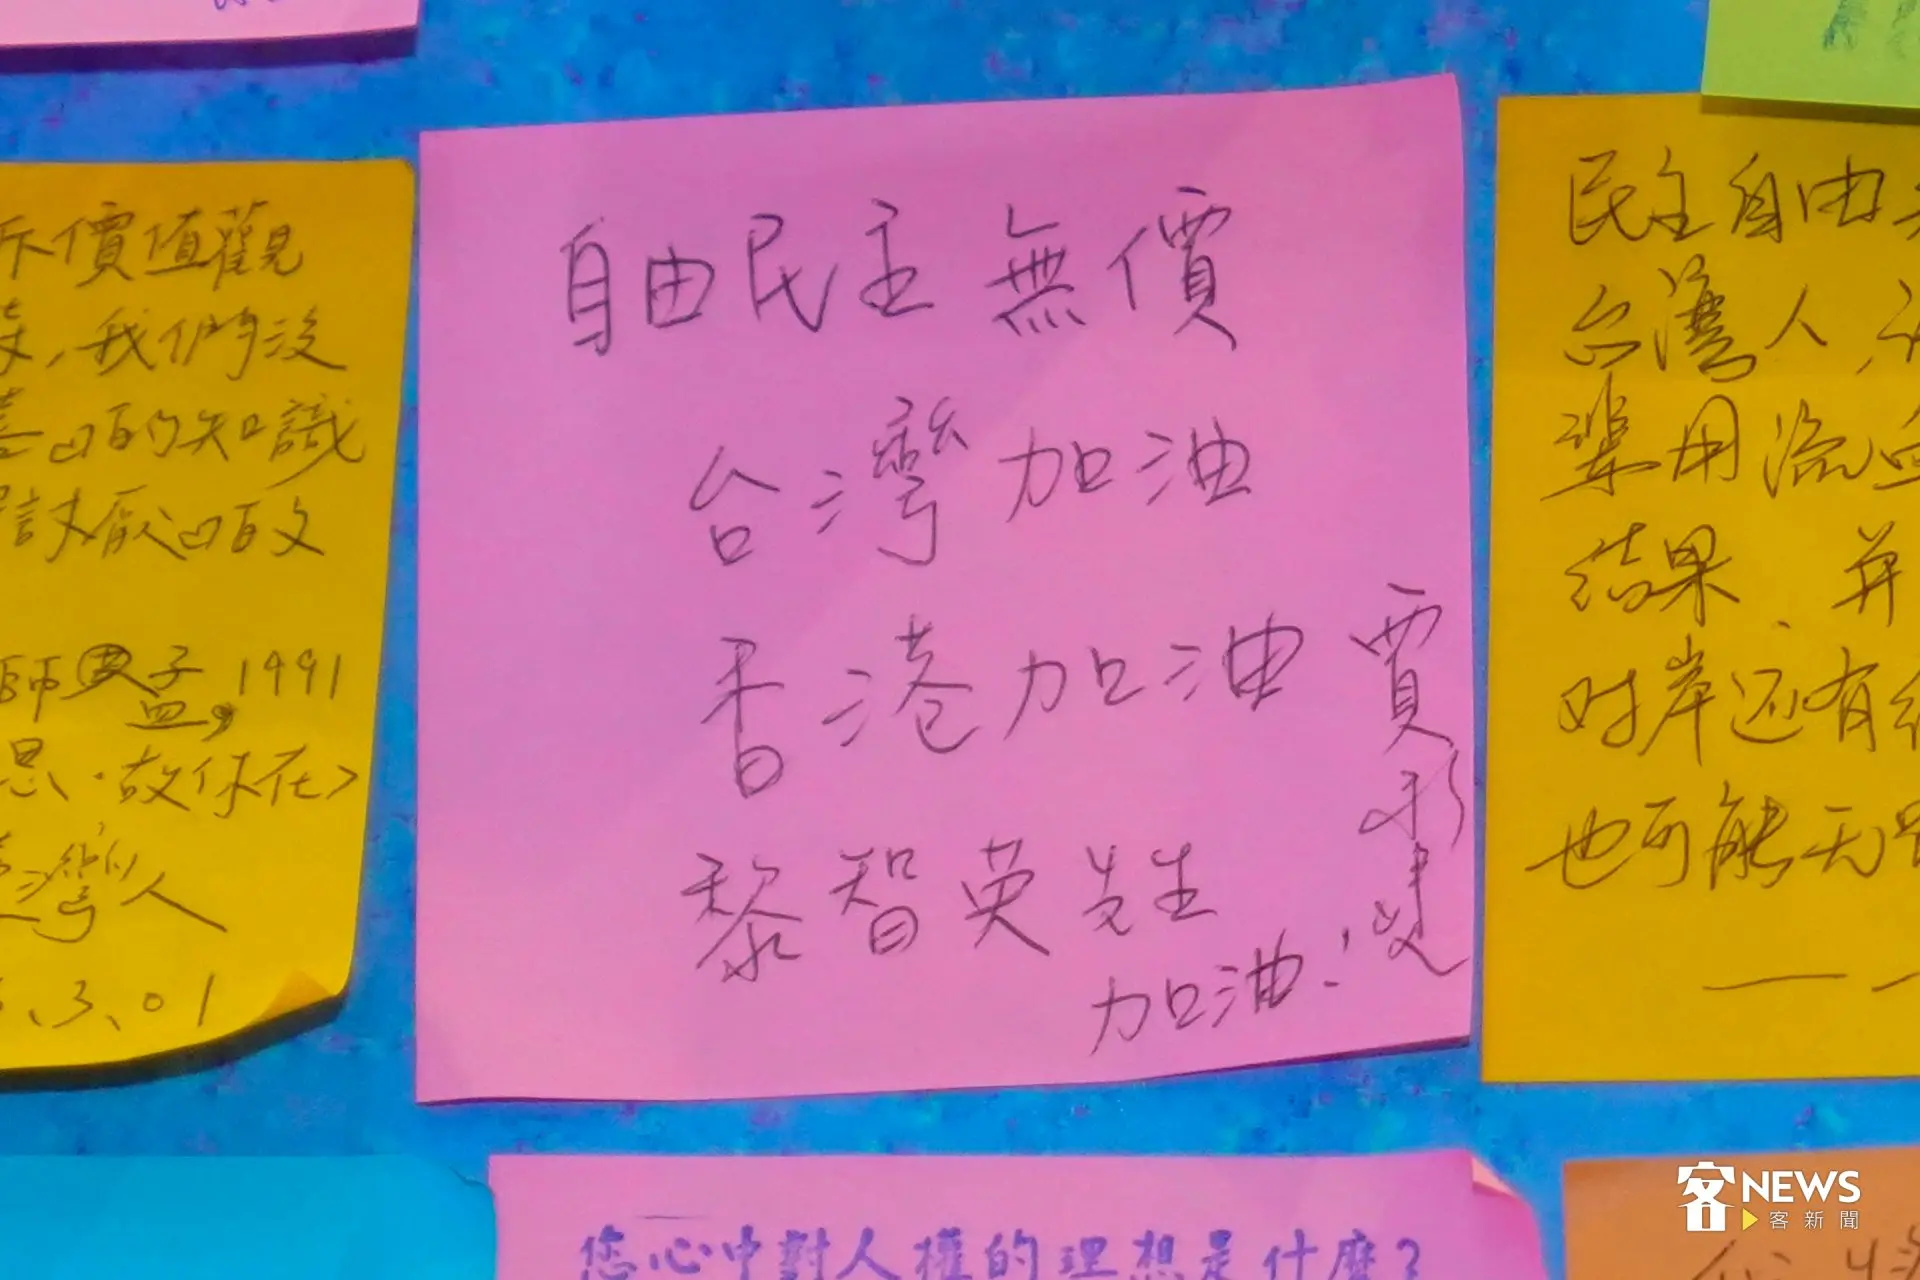 價值觀
,我們沒
的知識
討厭的文
師孟子,1991
思、故你在>
灣人
.3.01
自由民主無價
台灣加油
香港加油
黎智英先生
加油!
賈
民主自由
台灣人,
用流血
结果、并
对岸还有
也可能无
您心中對人權的理想是什麼?
客NEWS
客新聞